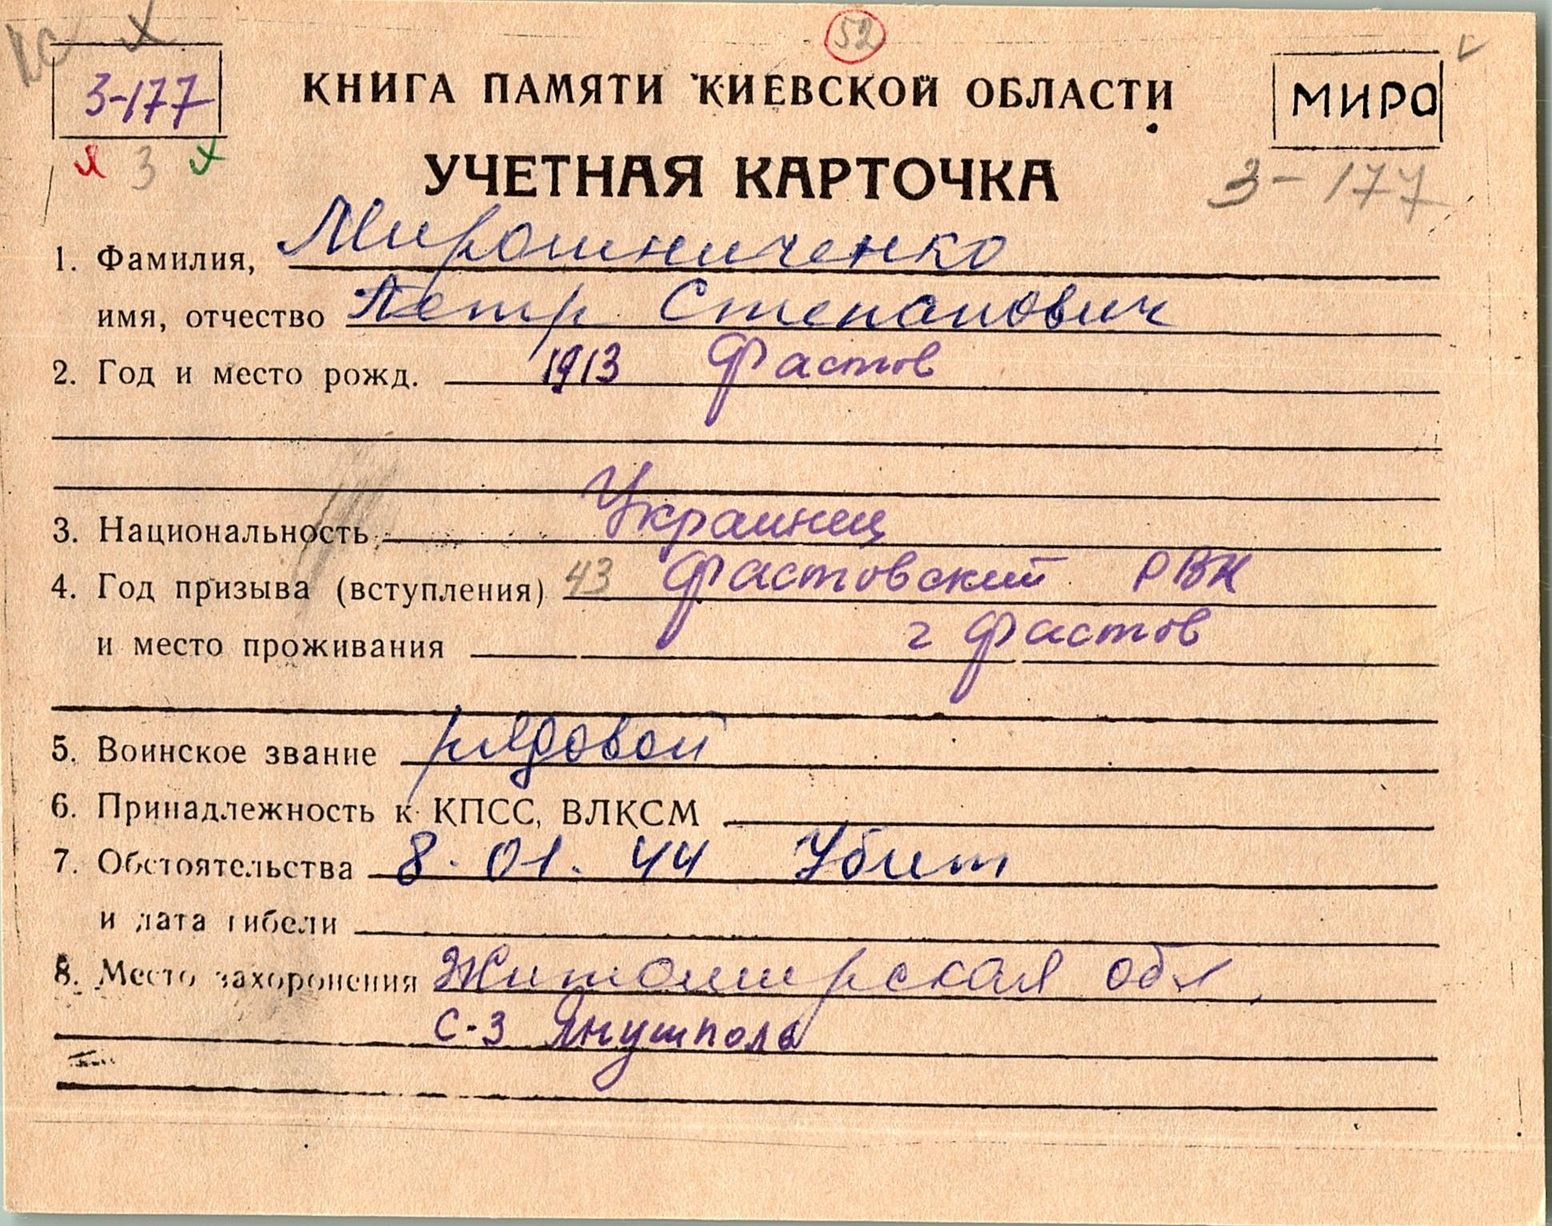 52
3-177
КНИГА ПАМЯТИ КИЕВСКОЙ ОБЛАСТИ
МИРО
3
3-177
УЧЕТНАЯ КАРТОЧКА
1. Фамилия, Мирошниченко
имя, отчество Петр Степанович
2. Год и место рожд. 1913 Фастов
3. Национальность Украинец
4. Год призыва (вступления) 43 Фастовский РВК
и место проживания г Фастов
5. Воинское звание рядовой
6. Принадлежность к КПСС, ВЛКСМ
7. Обстоятельства 8.01.44 Убит
и дата гибели
8. Место захоронения Житомирская обл,
С-З Янушполь